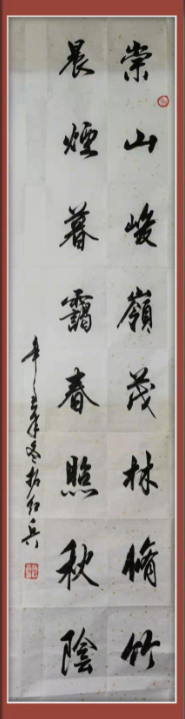 崇山峻嶺茂林脩竹
晨煙暮靄春煦秋陰
辛丑年冬